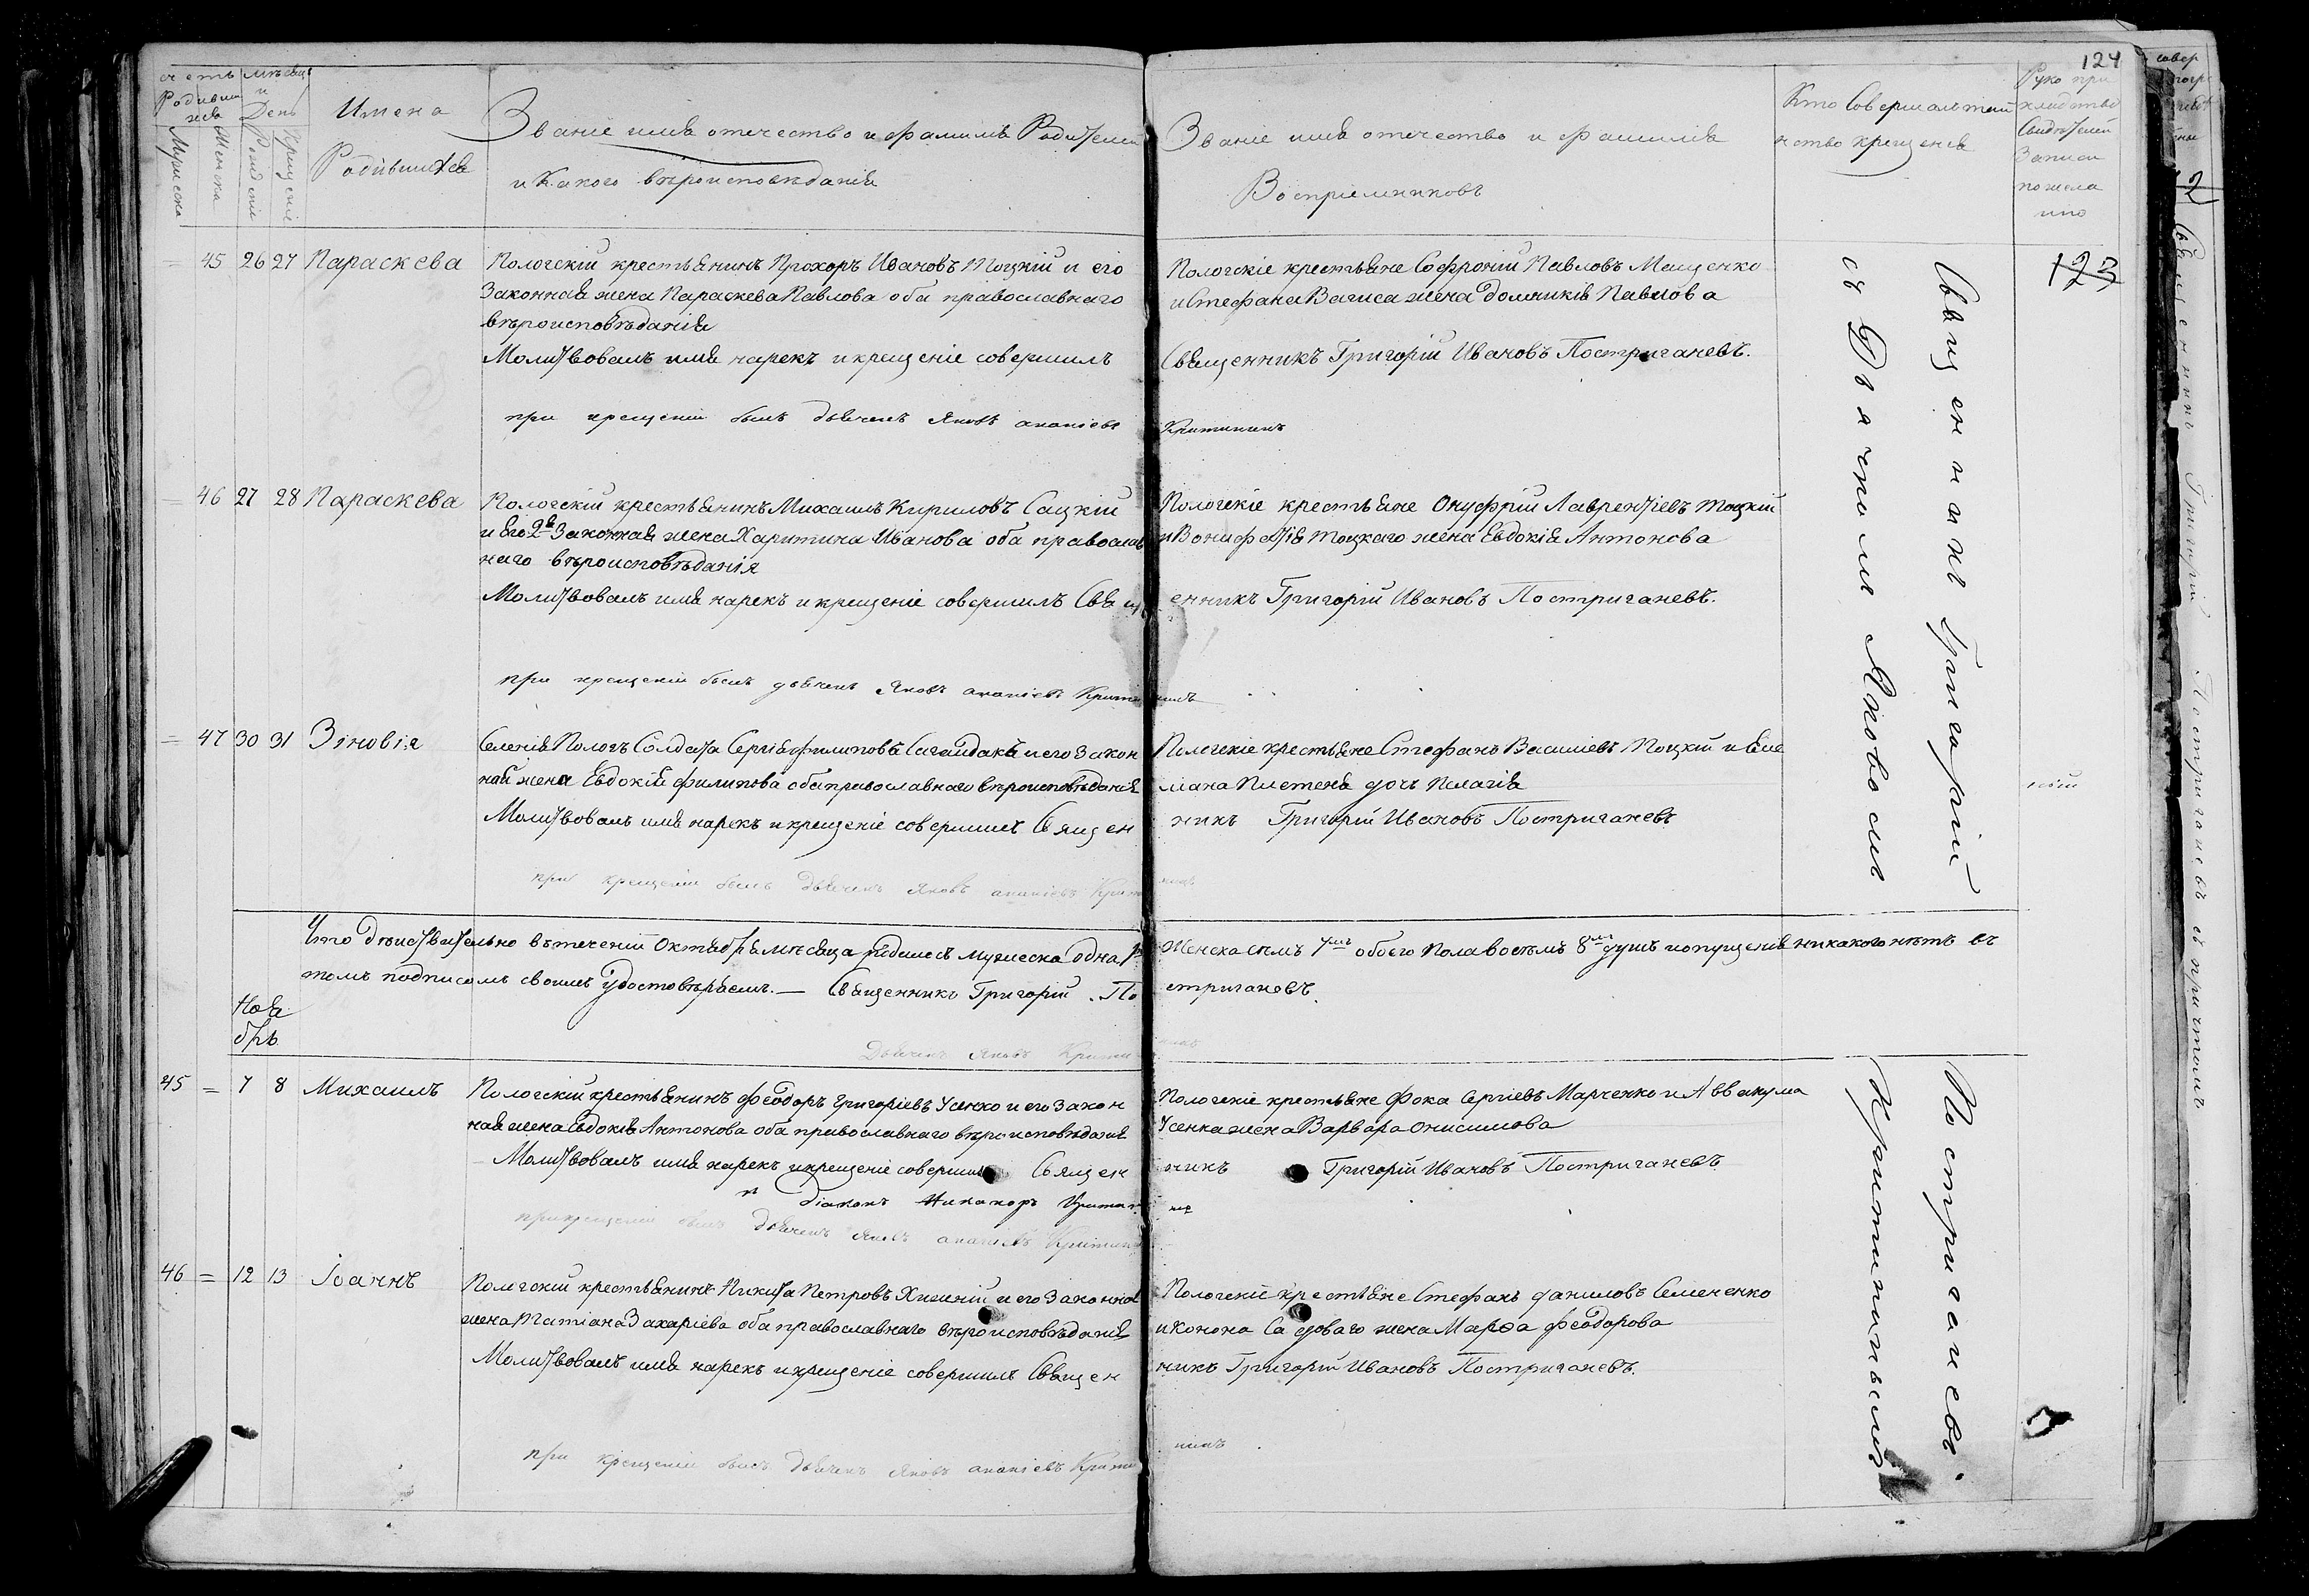 124
счетъ
Родивших
ся
Мужеска
Женска
мѣсяцъ
и
День
Рожденія
Крещенія
Имена
Родившихся
Званіе имя отечество и фамилія Родителей
и какого вѣроисповѣданія
Званіе имя отечество и фамилія
Воспріемниковъ
Кто Совершалъ таин
нство крещенія
Руко при
кладство
Свидѣтелей
Записи
по жела
нію
123
45 26 27 Параскева
Пологскій крестьянинъ Прохоръ Ивановъ Тоцкій и его
Законная жена Параскева Павлова оба православнаго
вѣроисповѣданія
Молитвовалъ имя нарекъ и крещеніе совершилъ
при крещеніи былъ дьячекъ Яковъ ананіевъ
Пологскіе крестьяне Софроній Павловъ Мащенко
и Стефана Вагиса жена Домникія Павлова
Священникъ Григорій Ивановъ Постригачевъ.
Критининъ
46 27 28 Параскева
Пологскій крестьянинъ Михаилъ Кириловъ Сацкій
и Его 2я Законная жена Харитина Иванова оба православ
наго вѣроисповѣданія
Молитвовалъ имя нарекъ и крещеніе совершилъ Свящ
при крещеніи былъ дьячекъ Яковъ ананіевъ Крити
Пологскіе крестьяне Онуфрій Лаврентіевъ Тоцкій
и Вонифатія Тоцкаго жена Евдокія Антонова
енникъ Григорій Ивановъ Постригачевъ.
нинъ
47 30 31 Зіновія
Селенія Пологъ Солдата Сергія филиповъ Сагайдакъ и его Закон
ная жена Евдокія филипова оба православнаго вѣроисповѣданія
Молитвовалъ имя нарекъ и крещеніе совершилъ Священ
при крещеніи былъ дьячекъ Яковъ ананіевъ Крити
Пологскіе крестьяне Стефанъ Василіевъ Тоцкій и Еме
ліана Плетеня дочь Пелагія
никъ Григорій Ивановъ Постригачевъ
нинъ
Священникъ Григорій
съ Дьячкомъ Яковомъ
Что дѣйствительно втеченіи Октября мѣсяца родилось мужеска одна
Женска семъ 7мъ обоего пола восемъ 8мъ душъ и опущенія никакого нѣтъ въ
томъ подписомъ своимъ удостовѣряемъ. — Священникъ Григорій По
стригачевъ.
Дьячекъ Яковъ Крити
нинъ
Ноя
брь
45 = 7 8 Михаилъ
Пологскій крестьянинъ Феодоръ Григоріевъ Усенко и его Закон
ная жена Евдокія Антонова оба православнаго вѣроисповѣданія
Молитвовалъ имя нарекъ и крещеніе совершилъ Священ
и Діаконъ Никаноръ Критин
при крещеніи былъ Дьячекъ Яковъ ананіевъ Критин
Пологскіе крестьяне Фока Сергіевъ Марченко и Аввакума
Усенка жена Варвара Онисимова
никъ Григорій Ивановъ Постригачевъ
46 = 12 13 Іоаннъ
Пологскій крестьянинъ Никита Петровъ Хижній и его Законная
жена Татіана Захаріева оба православнаго вѣроисповѣданія
Молитвовалъ имя нарекъ и крещеніе совершилъ Священ
при крещеніи былъ Дьячекъ Яковъ ананіевъ Крити
Пологскіе крестьяне Стефанъ даниловъ Семененко
и Конона Садоваго жена Марѳа Феодорова
никъ Григорій Ивановъ Постригачевъ.
нинъ
Постригачевъ.
Критининымъ